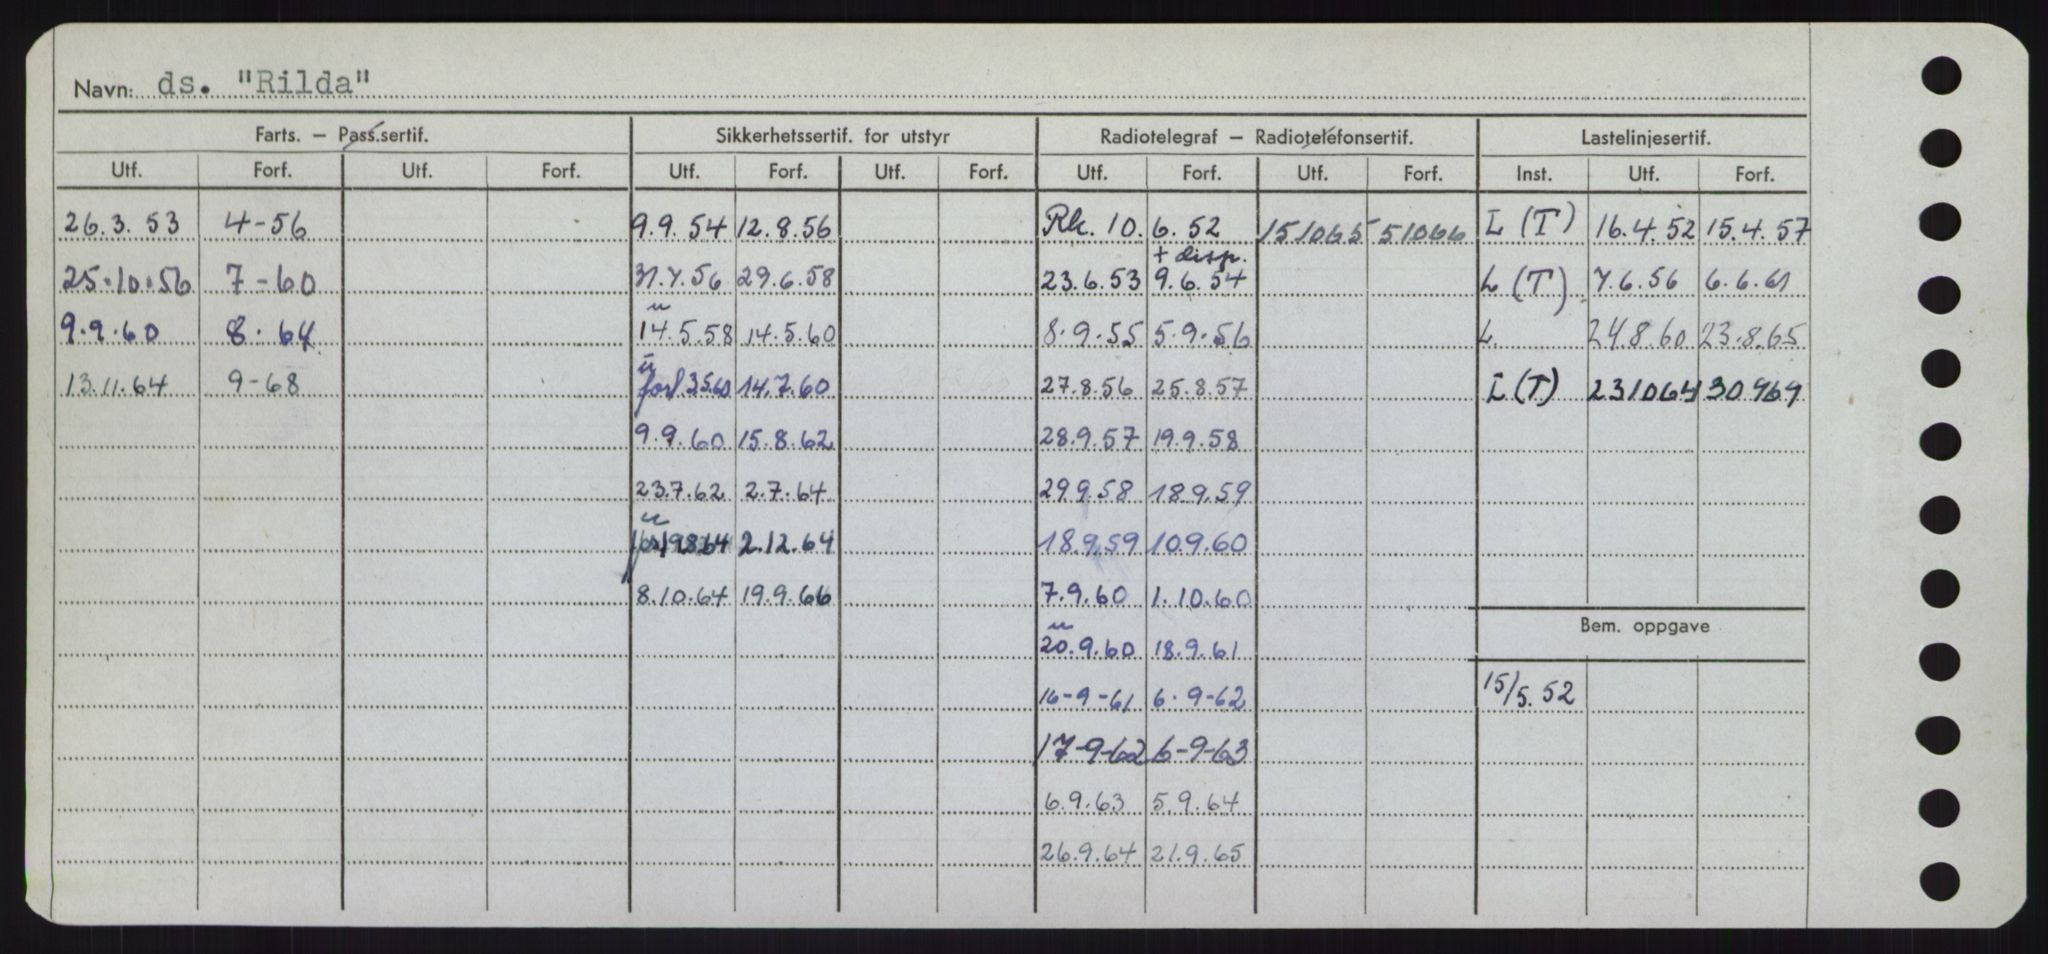 Navn: ds. "Rilda"
Farts. — Pass.sertif. Sikkerhetssertif. for utstyr Radiotelegraf — Radiotelefonsertif. Lastelinjesertif.
Utf. Forf. Utf. Forf. Utf. Forf. Utf. Forf. Utf. Forf. Utf. Forf. Inst. Utf. Forf.
26.3.53 4-56 9.9.54 12.8.56 Rk. 10.6.52 151065 51066 L (T) 16.4.52 15.4.57
+ disp.
25.10.56 7-60 31.7.56 29.6.58 23.6.53 9.6.54 L (T) 7.6.56 6.6.61
u
9.9.60 8.64 14.5.58 14.5.60 8.9.55 5.9.56 L 24.8.60 23.8.65
u
13.11.64 9-68 forl 3.5.60 14.7.60 27.8.56 25.8.57 L (T) 231064 30969
9.9.60 15.8.62 28.9.57 19.9.58
23.7.62 2.7.64 29.9.58 18.9.59
u
forl 19864 2.12.64 18.9.59 10.9.60
8.10.64 19.9.66 7.9.60 1.10.60
Bem. oppgave
u
20.9.60 18.9.61
16-9-61 6.9-62 15/5.52
17-9-62 6-9-63
6.9.63 5.9.64
26.9.64 21.9.65